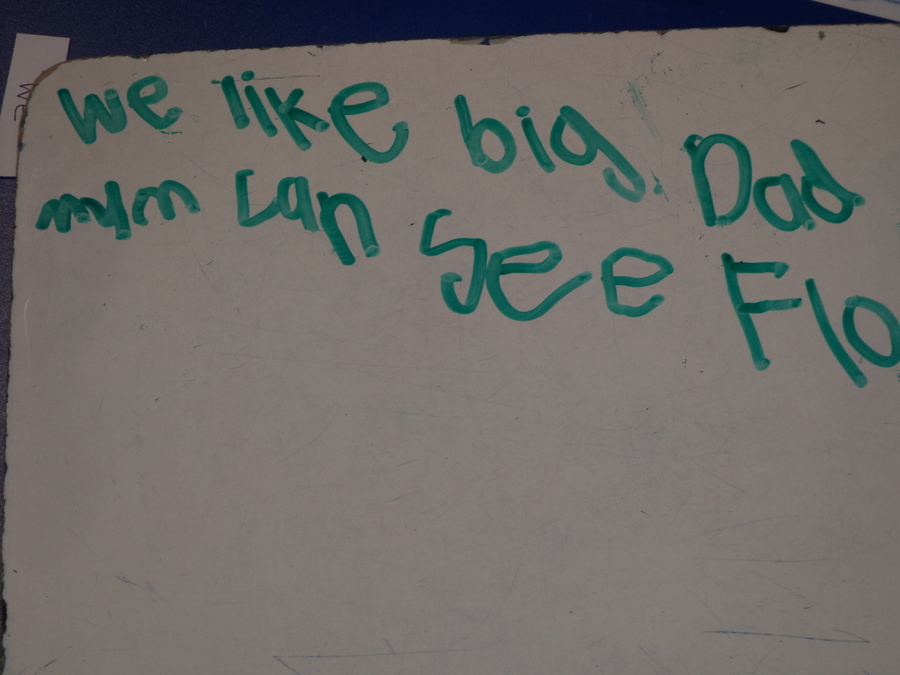 we like big Dad
mum can see Flo